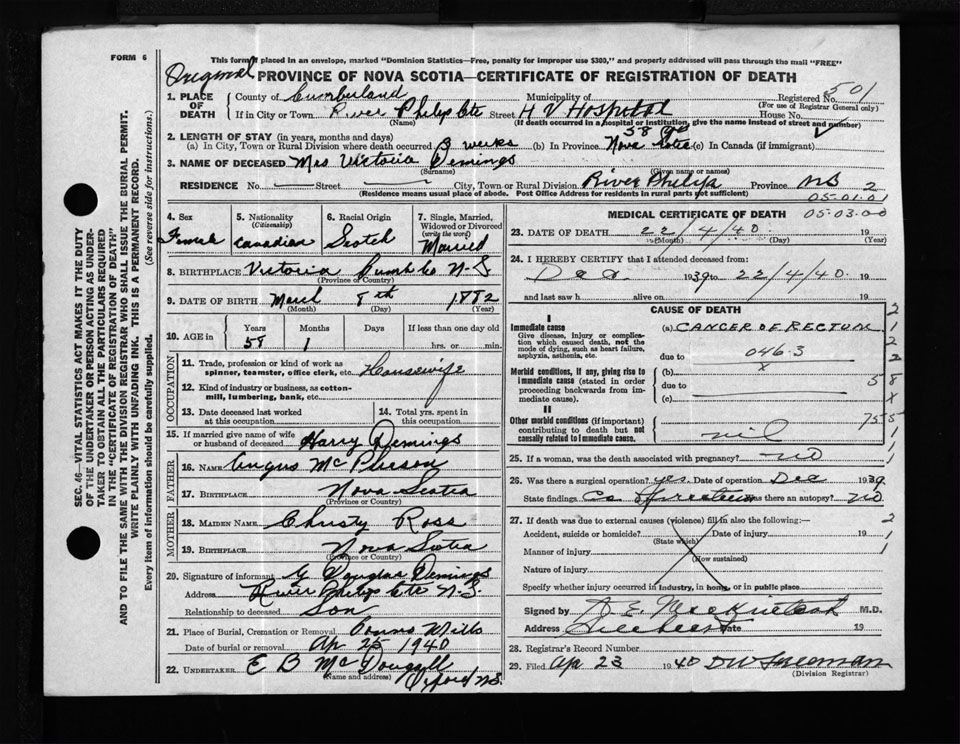 FORM 6
This form, if placed in an envelope, marked "Dominion Statistics—Free, penalty for improper use $300," and properly addressed will pass through the mail "FREE"
Original PROVINCE OF NOVA SCOTIA—CERTIFICATE OF REGISTRATION OF DEATH
Registered No. 501
(For use of Registrar General only)
1. PLACE OF DEATH County of Cumberland Municipality of
If in City or Town River Philip Ctre Street H V Hospital House No.
(Name) (If death occurred in a hospital or institution, give the name instead of street and number)
2. LENGTH OF STAY (in years, months and days)
(a) In City, Town or Rural Division where death occurred 3 weeks (b) In Province 58 yrs Nova Scotia (c) In Canada (if immigrant)
3. NAME OF DECEASED Mrs Victoria Demings
(Surname) (Given name or names)
RESIDENCE No. Street City, Town or Rural Division River Philip Province N.S. 2
(Residence means usual place of abode. Post Office Address for residents in rural parts not sufficient)
05.01.01
05.03.00
4. Sex Female
5. Nationality (Citizenship) Canadian
6. Racial Origin Scotch
7. Single, Married, Widowed or Divorced (write the word) Married
8. BIRTHPLACE Victoria Cumb Co N-S
(Province or Country)
9. DATE OF BIRTH March 8th 1882
(Month) (Day) (Year)
10. AGE in Years 58 Months 1 Days If less than one day old hrs. or min.
OCCUPATION
11. Trade, profession or kind of work as spinner, teamster, office clerk, etc. Housewife
12. Kind of industry or business, as cotton-mill, lumbering, bank, etc.
13. Date deceased last worked at this occupation
14. Total yrs. spent in this occupation
15. If married give name of wife or husband of deceased Harry Demings
FATHER
16. NAME Angus McPherson
17. BIRTHPLACE Nova Scotia
(Province or Country)
MOTHER
18. MAIDEN NAME Christy Ross
19. BIRTHPLACE Nova Scotia
(Province or Country)
20. Signature of informant G Douglas Demings
Address River Philip Ctre N.S.
Relationship to deceased Son
21. Place of Burial, Cremation or Removal Mills
Date of burial or removal Ap 25 1940
22. UNDERTAKER E B McDougall
(Name and address) Oxford N.S.
MEDICAL CERTIFICATE OF DEATH
23. DATE OF DEATH 22/4/40 19
(Month) (Day) (Year)
24. I HEREBY CERTIFY that I attended deceased from:
Dec 1939 to 22/4/40. 19
and last saw h alive on 19
CAUSE OF DEATH
I
Immediate cause
Give disease, injury or complication which caused death, not the mode of dying, such as heart failure, asphyxia, asthenia, etc.
(a) CANCER OF RECTUM
due to 046.3
x
Morbid conditions, if any, giving rise to immediate cause (stated in order proceeding backwards from immediate cause).
(b)
due to
(c)
II
Other morbid conditions (if important) contributing to death but not causally related to immediate cause.
nil
25. If a woman, was the death associated with pregnancy? NO
26. Was there a surgical operation? yes. Date of operation Dec 1939
State findings Was there an autopsy? NO
27. If death was due to external causes (violence) fill in also the following:—
Accident, suicide or homicide? Date of injury 19
(State which)
Manner of injury
(How sustained)
Nature of injury
Specify whether injury occurred in industry, in home, or in public place
Signed by M.D.
Address Date 19
28. Registrar's Record Number
29. Filed Ap 23 1940
(Division Registrar)
SEC. 46—VITAL STATISTICS ACT MAKES IT THE DUTY
OF THE UNDERTAKER OR PERSON ACTING AS UNDERTAKER TO OBTAIN ALL THE PARTICULARS REQUIRED
IN THE "CERTIFICATE OF REGISTRATION OF DEATH"
AND TO FILE THE SAME WITH THE DIVISION REGISTRAR WHO SHALL ISSUE THE BURIAL PERMIT.
WRITE PLAINLY WITH UNFADING INK. THIS IS A PERMANENT RECORD.
Every item of information should be carefully supplied. (See reverse side for instructions.)